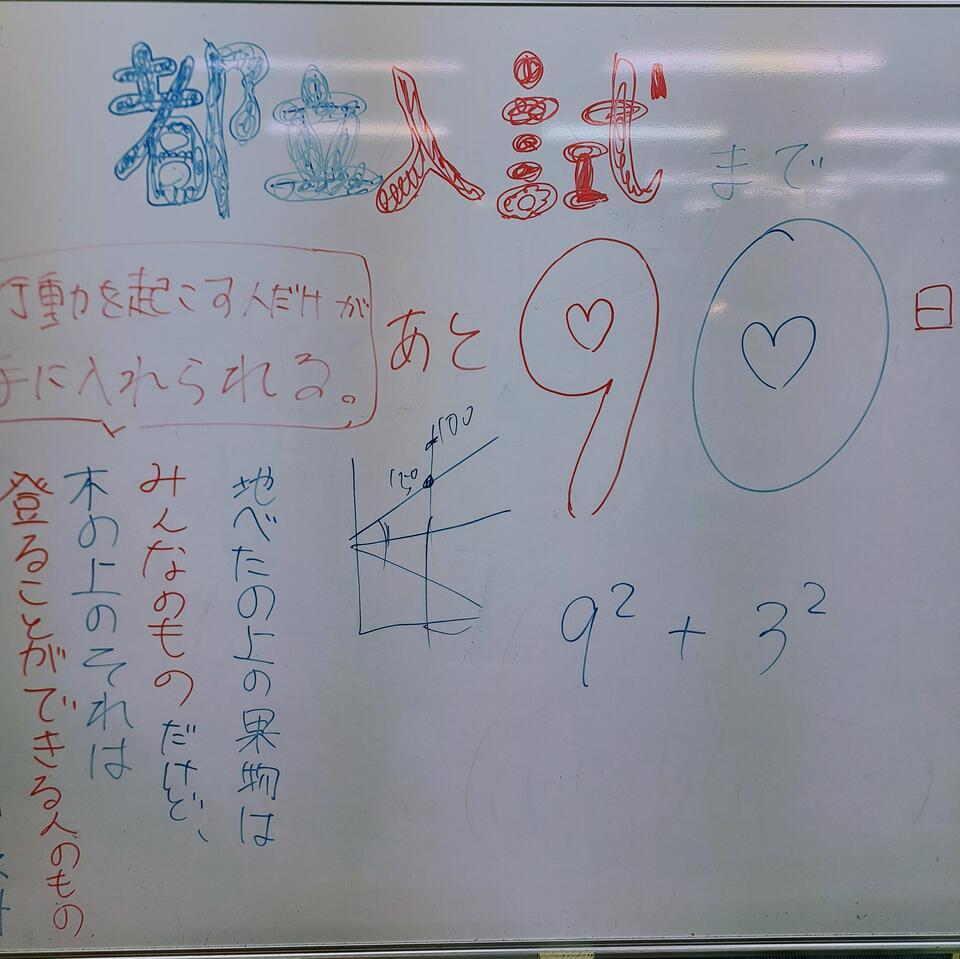 都立入試まで
あと90日
行動を起こす人だけが
手に入れられる。
地べたの上の果物は
みんなのものだけど、
木の上のそれは
登ることができる人のもの
9² + 3²